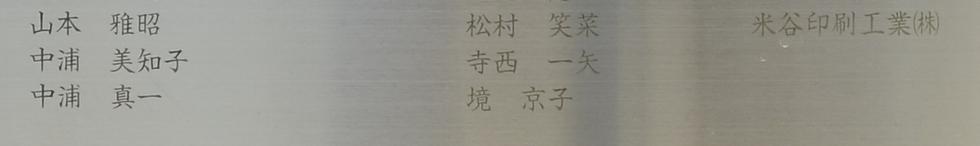 山本　雅昭
中浦　美知子
中浦　真一
松村　笑菜
寺西　一矢
境　京子
米谷印刷工業㈱